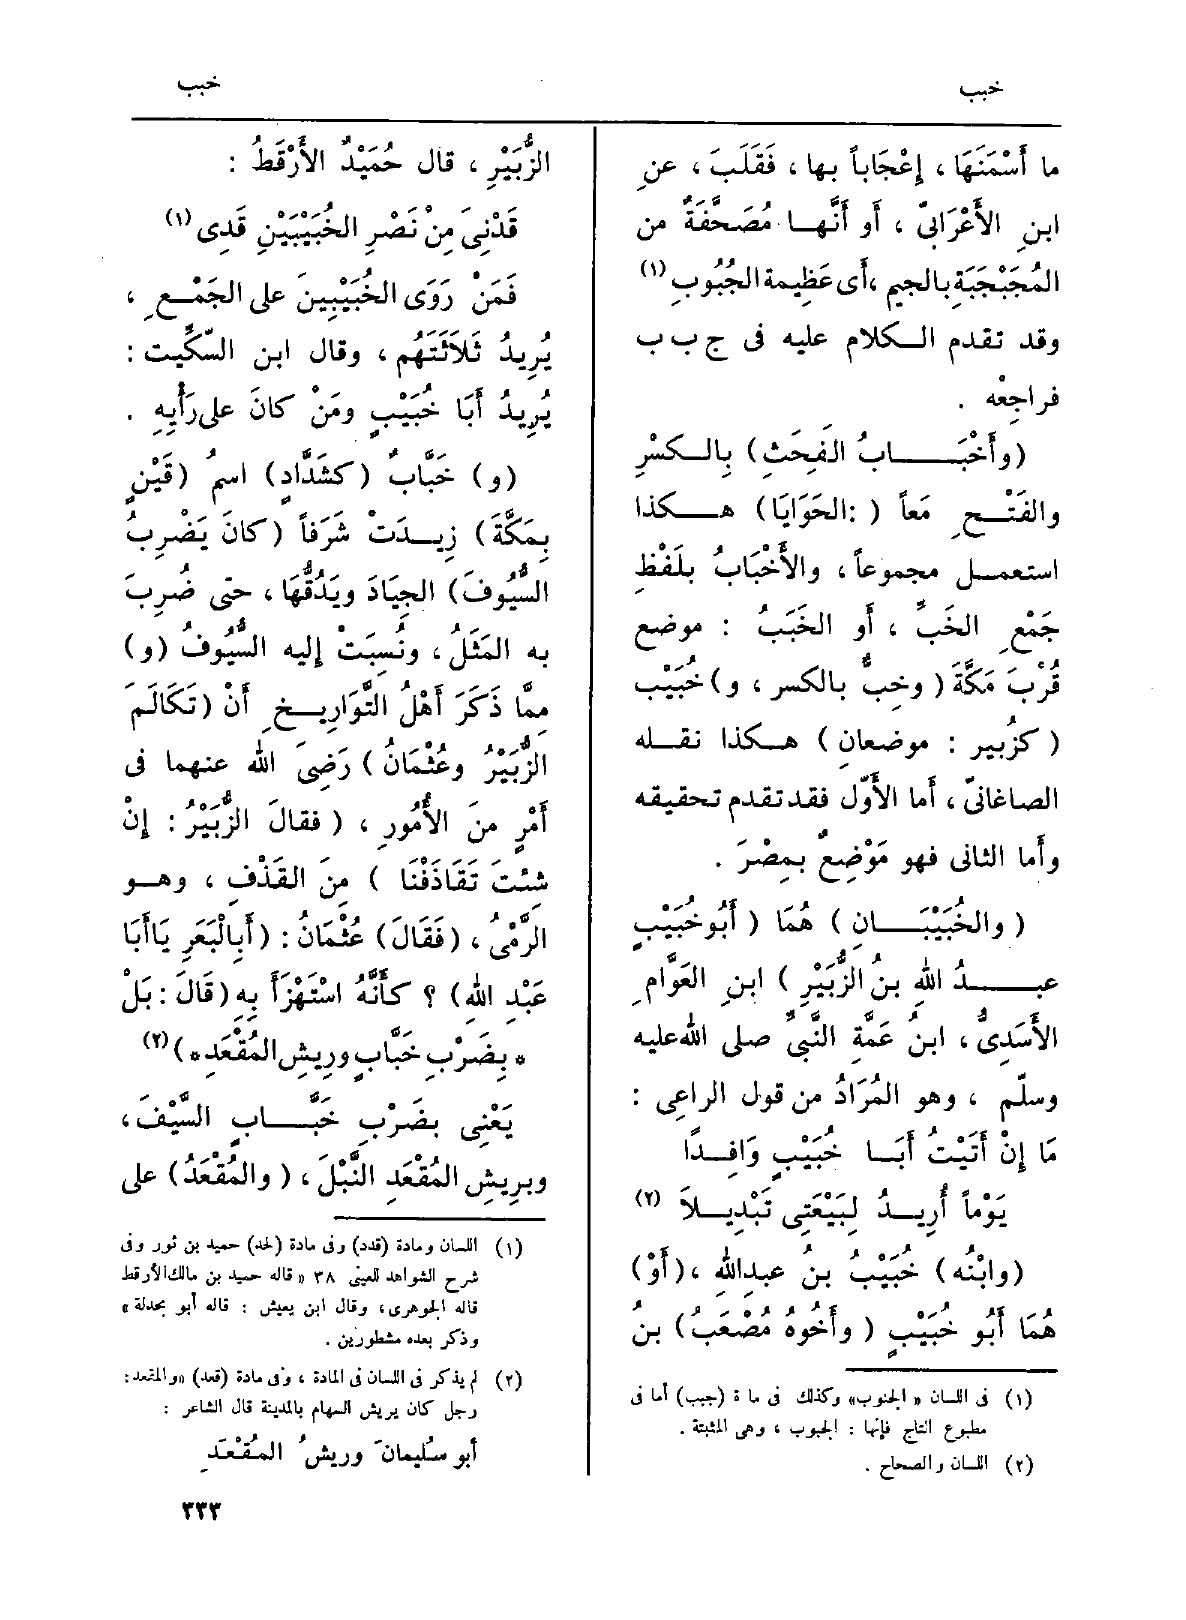 خبب
خبب
ما أَسْمَنَهَا ، إِعْجَاباً بها ، فَقَلَبَ ، عن
ابنِ الأَعْرَابىّ ، أو أَنَّهـا مُصَحَّفَةٌ من
المُجَبْجَبَةِ بالجيم ،أَى عَظِيمة الجُبُوبِ (١)
وقد تقدم الـكلام عليه فى ج ب ب
فراجِعْه .
(وأَخْبَـــابُ الفَحِثِ) بِالـكسْرِ
والفَتْـحِ مَعاً ( :الحَوَايَا) هـكذا
استعمـل مجموعاً ، والأَخْبَابُ بلَفْظِ
جَمْعِ الخَبِّ ، أَو الخَبَبُ : موضع
قُرْبَ مَكَّةَ ( وخِبٌّ بالكسر ، و)خُبَيْب
( كزُبير : موضعانِ ) هـكذا نقـله
الصاغانىّ ، أما الأَوّل فقد تقدم تحقيقه
وأما الثانى فهو مَوْضِعٌ بـمِصْرَ .
( والخُبَيْبَـــانِ ) هُمَا ( أَبُو خُبَيْبٍ
عبـــدُ اللهِ بنُ الزُّبَيْرِ ) ابنِ العَوَّامِ
الأَسَدِىُّ ، ابنُ عَمَّةِ النَّبِىِّ صلى اللهعليه
وسلّم ، وهو المُرَادُ من قول الراعِى :
مَا إِنْ أَتَيْتُ أَبَـا خُبَيْبٍ وَافِـدًا
يَوْماً أُرِيـدُ لِبَيْعَتِى تَبْدِيـلاَ (٢)
(وابْنُه) خُبَيْبُ بنُ عبدالله ،(أَوْ)
هُمَا أَبُو خُبَيْبٍ ( وأَخُوهُ مُصْعَبُ) بنُ
(١) فى اللسان « الجنوب» وكذلك فى ما ة (جبب) أما فى
مطبوع التاج فإنها : الجبوب ، وهى المثبتة .
(٢) اللسان والصحاح .
الزُّبَيْرِ ، قال حُمَيْدٌ الأَرْقَطُ :
قَدْنِىَ مِنْ نَصْرِ الخُبَيْبَيْنِ قَدِى (١)
فَمَنْ رَوَى الخُبَيْبِينَ على الجَمْـعِ ،
يُرِيدُ ثَلاَثَتَهُم ، وقال ابن السكِّيت :
يُرِيدُ أَبَا خُبَيْبٍ ومَنْ كانَ على رَأْيِهِ .
(و) خَبَّابٌ (كشَدَّادٍ) اسمُ (قَيْنٍ
بِمَكَّةَ) زِيـدَتْ شَرَفاً (كانَ يَضْرِبُ
السُّيُوفَ) الجِيَادَ ويَدُقُّهَا ، حتى ضُرِبَ
به المَثَلُ ، ونُسِبَتْ إليه السُّيُوفُ (و)
مِمَّا ذَكَرَ أَهْلُ التَّوَارِيـخِ أَنْ (تَكَالَمَ
الزُّبَيْرُ وعُثْمَانُ ) رَضِىَ الله عنهما فى
أَمْرٍ مِنَ الأُمُورِ ، ( فقالَ الزُّبَيْرُ : إِنْ
شِئْتَ تَقَاذَفْنَا ) مِنَ القَذْفِ ، وهـو
الرَّمْىُ ، (فَقَالَ) عُثْمَانُ : (أَبِالْبَعَرِ يَاأَبَا
عَبْدِ اللهِ) ؟ كأَنَّهُ اسْتَهْزَأَ بِهِ (قَالَ : بَلْ
* بِضَرْبِ خَبَّابٍ وَرِيشِ المُقْعَدِ*) (٢)
يَعْنِى بضَرْبِ خَبَّـــابٍ السَّيْفَ ،
وبرِيشِ المُقْعَدِ النَّبْلَ ، ( والمُقْعَدُ ) على
(١) اللسان ومادة (قدد) وفى مادة (لحد) حميد بن ثور وفى
شرح الشواهد للعينى ٣٨ « قاله حميد بن مالك الأرقط
قاله الجوهرى، وقال ابن يعيش : قاله أبو بحدلة »
وذكر بعده مشطورين .
(٢) لم يذكر فى اللسان فى المادة ، وفى مادة (قعد) «والمقعد :
رجل كان يريش السهام بالمدينة قال الشاعر :
أبو سُليمانَ وريشُ المُقْعَدِ
٣٣٣